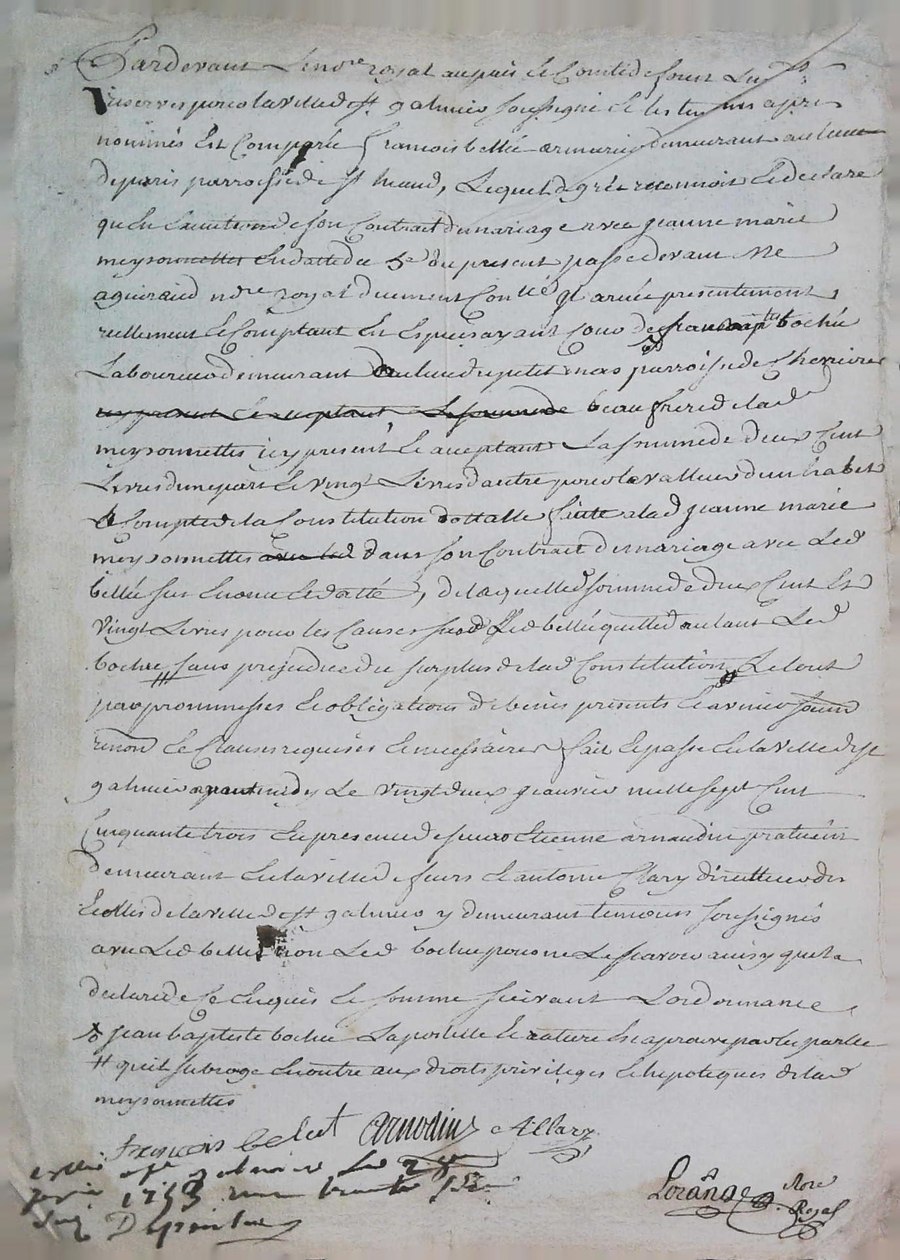 Pardevant Le no.re royal au païs et Comté de forest
reservé pour la ville de st galmier soussigné et les temoins apres
nommés Est Comparu francois bellié armurier demeurant au lieu
de paris parroisse de st heaud, Lequel de gré reconnoit et declare
qu'en Execution de son Contrat de mariage avec jeanne marie
meysonnettes En datte du 5e du present passé devant Me
aguiraud nore royal duement Conllé il a receu presentement
reellement et Comptant En Especes ayant Cours de bochu
Laboureur demeurant au lieu du petit mas parroisse de Chevrieres
beaufrere de lad
meysonnettes icy present et aceptant La somme de deux Cent
Livres d'une part et vingt Livres d'autre pour la valleur d'un habet
a Compte de la Constitution dottalle faitte a lad jeanne marie
meysonnettes dans son Contrat de mariage avec Led
bellié sus Enoncé et datté, de laquelle somme de deux Cent Et
vingt Livres pour les Causes susd Led bellié quitte Led
bochu sans prejudice du surplus de lad Constitution Le tout
par prommesses et obligations de biens presents et avenir soum
renon et Clauses requises et necessaires fait et passé En la ville de st
galmier avant midy Le vingt deux janvier mille sept Cent
Cinquante trois En presence de sieur Etienne arnaudin praticien
demeurant En la ville de feurs et antoine allary directeur des
Ecolles de la ville de st galmier y demeurant temoins soussignés
avec Led bellié non Led bochu pour ne Le scavoir ainsy qu'il a
declaré de Ce Enquis et sommé suivant L'ordonnance
jean baptiste bochu La postille et rature Est aprouvé par les parties
# qu'il subroge En outre aux droits privileges et hipoteques de lad
meysonnettes
francois beliet Arnodin Allary
a st galmier Le
1753
Lorange Nore Royal